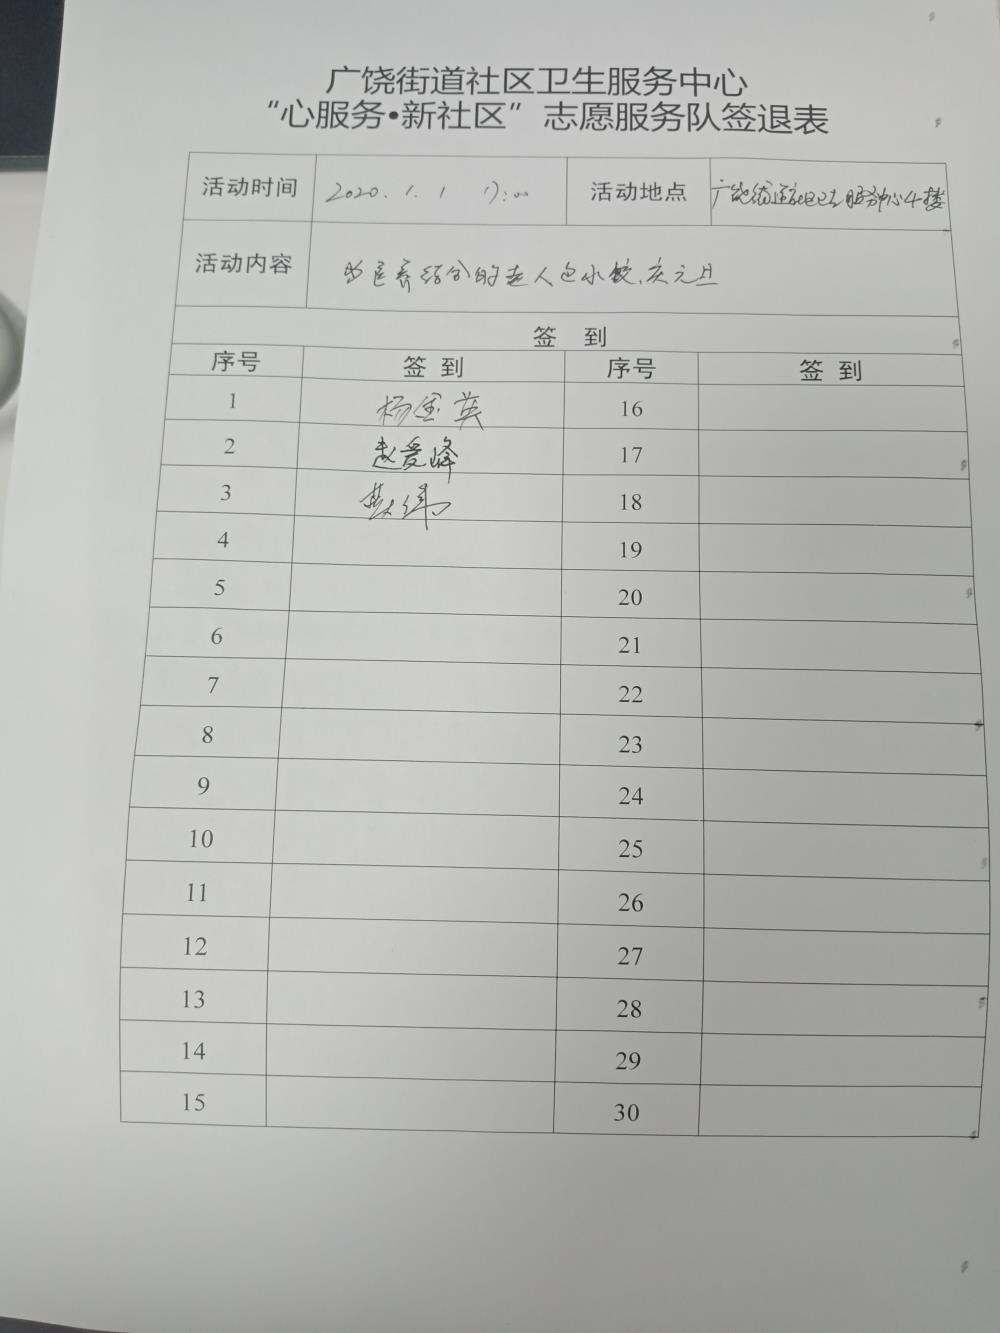 广饶街道社区卫生服务中心
“心服务•新社区”志愿服务队签退表
活动时间 2020.1.1 17:00 活动地点 广饶街道社区卫生服务中心4楼
活动内容 为医养结合的老人包水饺,庆元旦
签 到
序号 签 到 序号 签 到
1 杨金英 16
2 赵爱峰 17
3 18
4 19
5 20
6 21
7 22
8 23
9 24
10 25
11 26
12 27
13 28
14 29
15 30